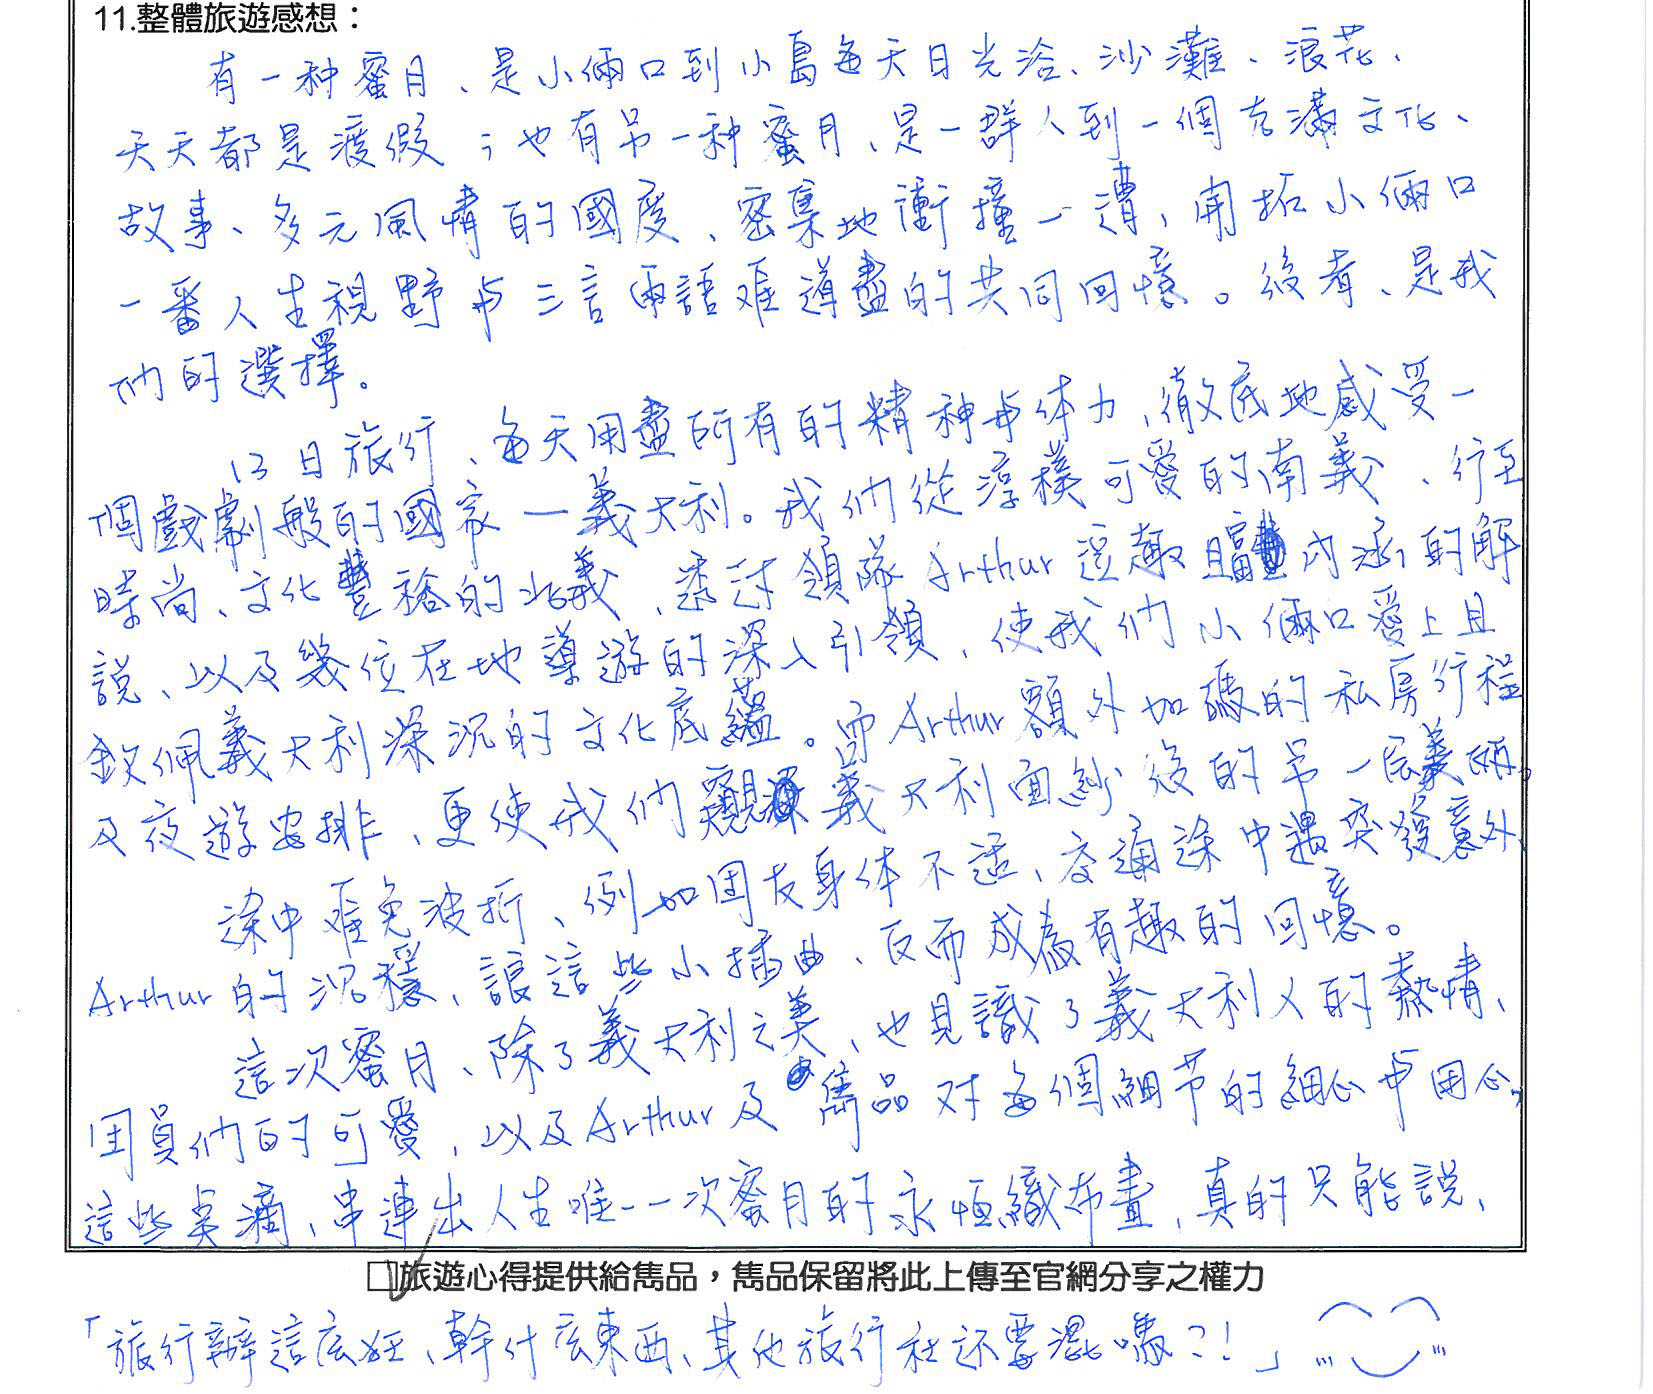 11.整體旅遊感想：
有一种蜜月、是小倆口到小島每天日光浴、沙灘、浪花、
天天都是渡假；也有另一种蜜月、是一群人到一個充滿文化、
故事、多元風情的國度、密集地衝撞一遭，開拓小倆口
一番人生視野与三言兩語难導盡的共同回憶。後者、是我
们的選擇。
13日旅行、每天用盡所有的精神与体力，徹底地感受一
個戲劇般的國家—義大利。我們從淳樸可愛的南義、行至
時尚、文化豐裕的北義、透过領隊Arthur逗趣且富內涵的解
說、以及幾位在地導遊的深入引領，使我們小倆口愛上且
欽佩義大利深沉的文化底蘊。而Arthur額外加碼的私房行程
及夜遊安排、更使我們窺見義大利面紗後的另一层美丽。
途中难免波折、例如団友身体不适、交通途中遇突發意外
Arthur的沉穩、讓這些小插曲、反而成為有趣的回憶。
這次蜜月、除了義大利之美、也見識了義大利人的熱情、
团員們的可愛，以及Arthur及雋品对每個細节的細心与用心。
這些点滴、串連出人生唯一一次蜜月的永恒織布畫，真的只能說、
旅遊心得提供給雋品，雋品保留將此上傳至官網分享之權力
「旅行辦這広狂、幹什広東西、其他旅行社还要混嗎？！」